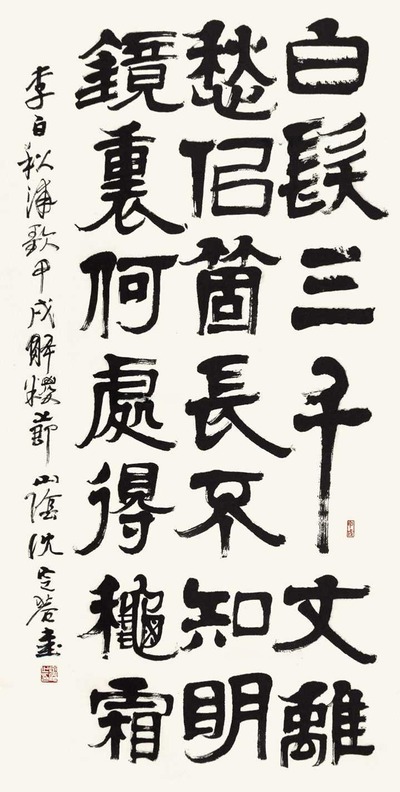 白髮三千文離
愁佀箇長不知明
鏡裏何處得龝霜
李白秋浦歌甲戌解糉節山陰沈定菴書